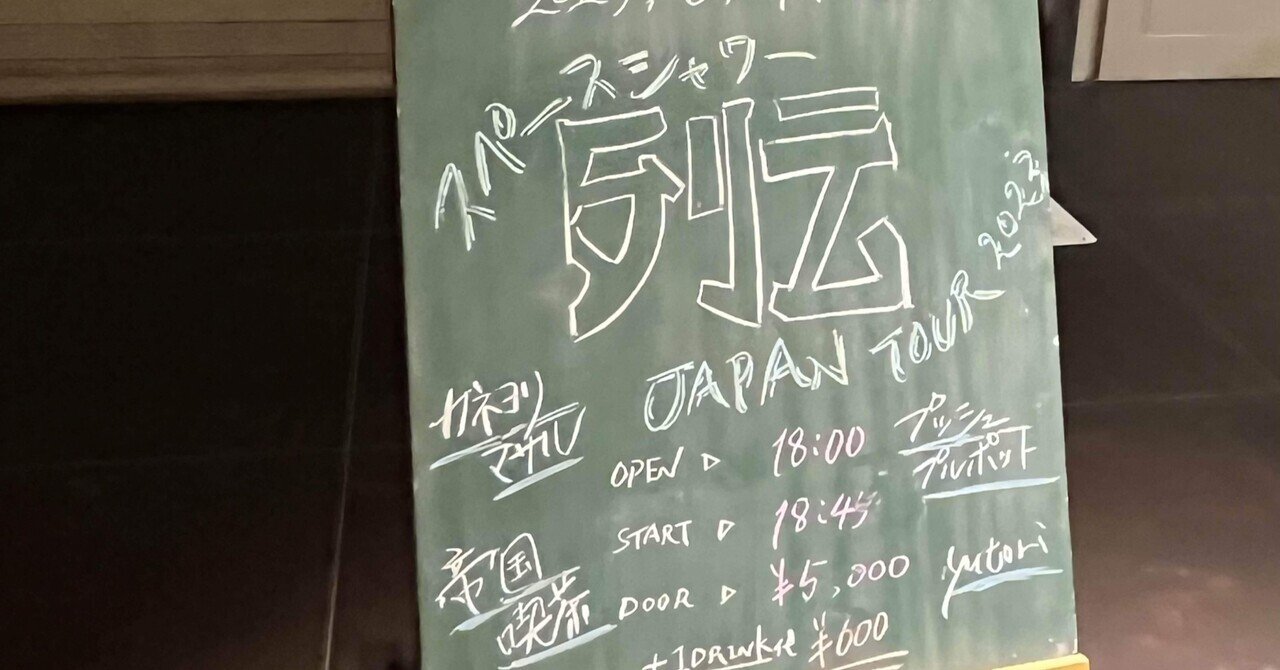 スペースシャワー
列伝
JAPAN TOUR 2023
カネヨリ
マサル
OPEN ▷ 18:00
プッシュ
プルポット
START ▷ 18:45
帝国
喫茶
DOOR ▷ ¥5,000
yutori
+1DRINK代 ¥600